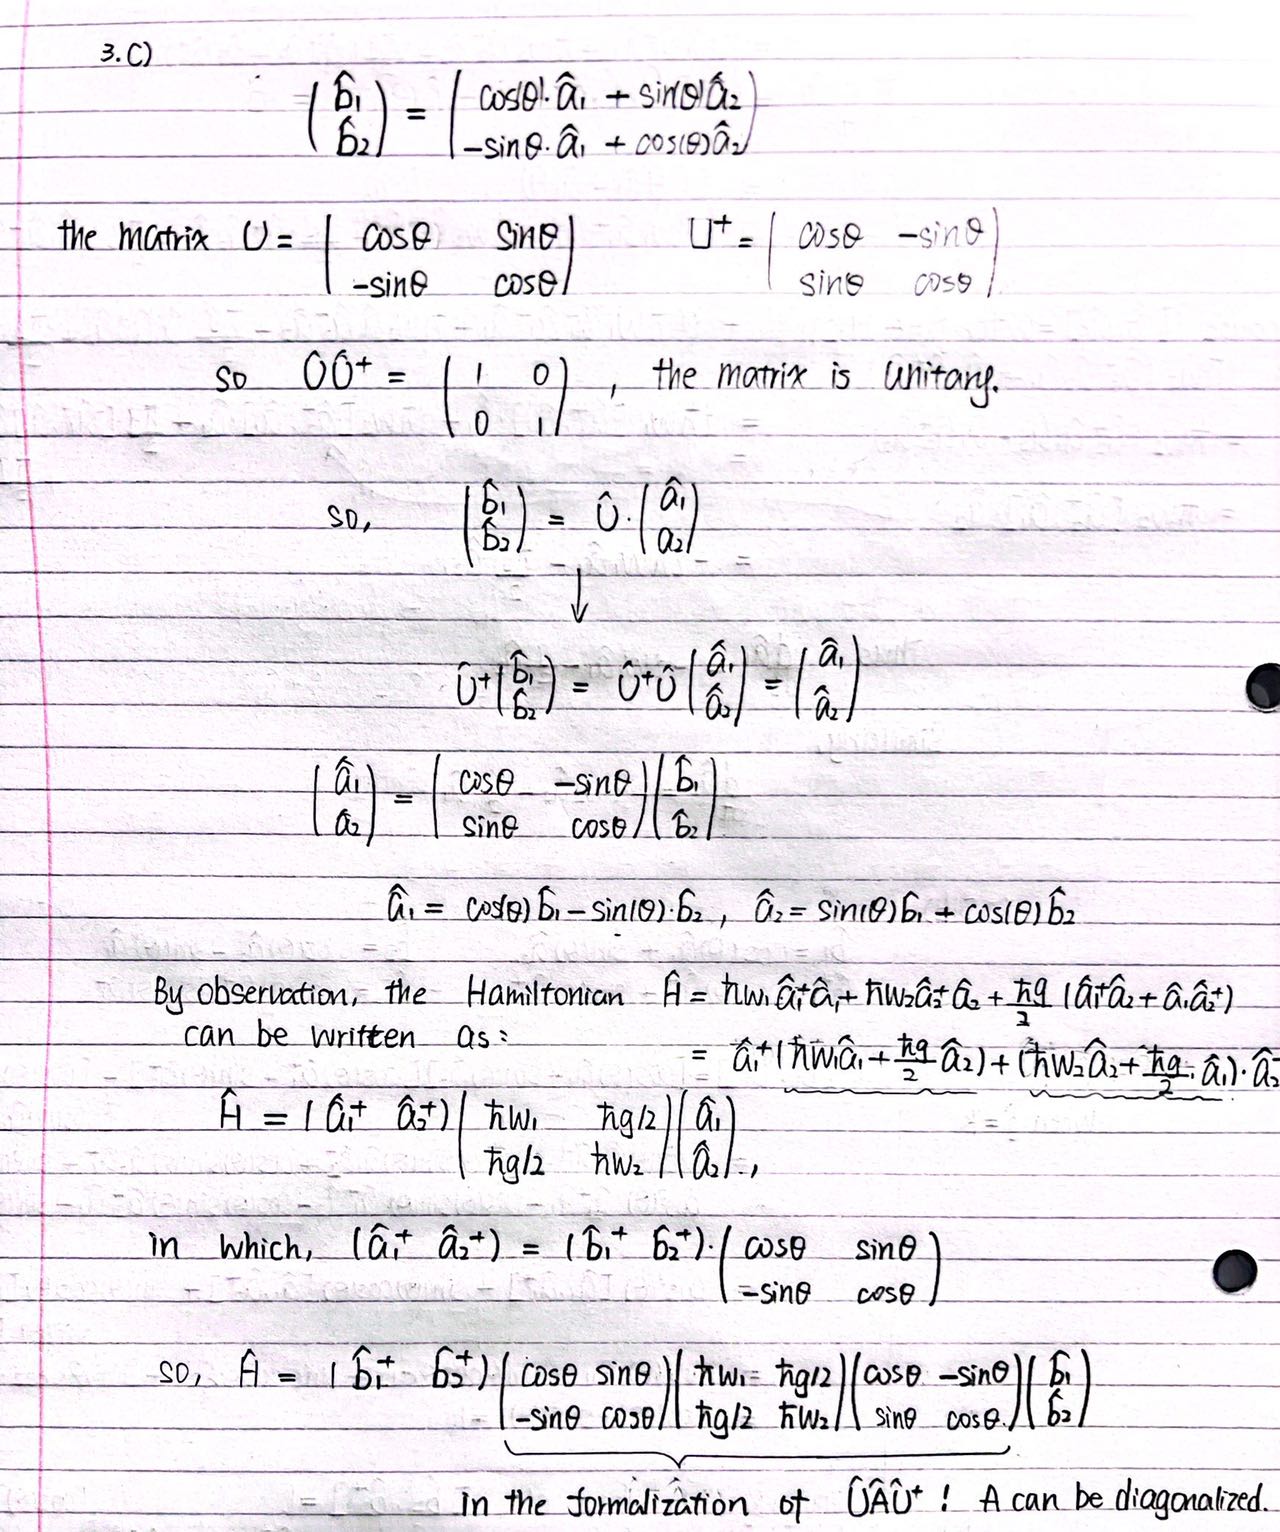 3.C)
(b̂₁ b̂₂) = (cos(θ)·â₁ + sin(θ)â₂ -sinθ·â₁ + cos(θ)â₂)
the matrix U = (cosθ sinθ -sinθ cosθ) U⁺ = (cosθ -sinθ sinθ cosθ)
so ÛÛ⁺ = (1 0 0 1), the matrix is Unitary.
so, (b̂₁ b̂₂) = Û·(â₁ a₂)
↓
Û⁺(b̂₁ b̂₂) = Û⁺Û(â₁ â₂) = (â₁ â₂)
(â₁ â₂) = (cosθ -sinθ sinθ cosθ)(b̂₁ b̂₂)
â₁ = cos(θ)b̂₁ - sin(θ)·b̂₂, â₂ = sin(θ)b̂₁ + cos(θ)b̂₂
By observation, the Hamiltonian Ĥ = ħw₁â₁⁺â₁ + ħw₂â₂⁺â₂ + ħg/2 (â₁⁺â₂ + â₁â₂⁺)
can be written as: = â₁⁺(ħw₁â₁ + ħg/2 â₂) + (ħw₂â₂ + ħg/2·â₁)·â₂
Ĥ = (â₁⁺ â₂⁺)(ħw₁ ħg/2 ħg/2 ħw₂)(â₁ â₂),
in which, (â₁⁺ â₂⁺) = (b̂₁⁺ b̂₂⁺)·(cosθ sinθ -sinθ cosθ)
so, Ĥ = (b̂₁⁺ b̂₂⁺)(cosθ sinθ -sinθ cosθ)(ħw₁ ħg/2 ħg/2 ħw₂)(cosθ -sinθ sinθ cosθ)(b̂₁ b̂₂)
in the formalization of ÛÂÛ⁺! A can be diagonalized.